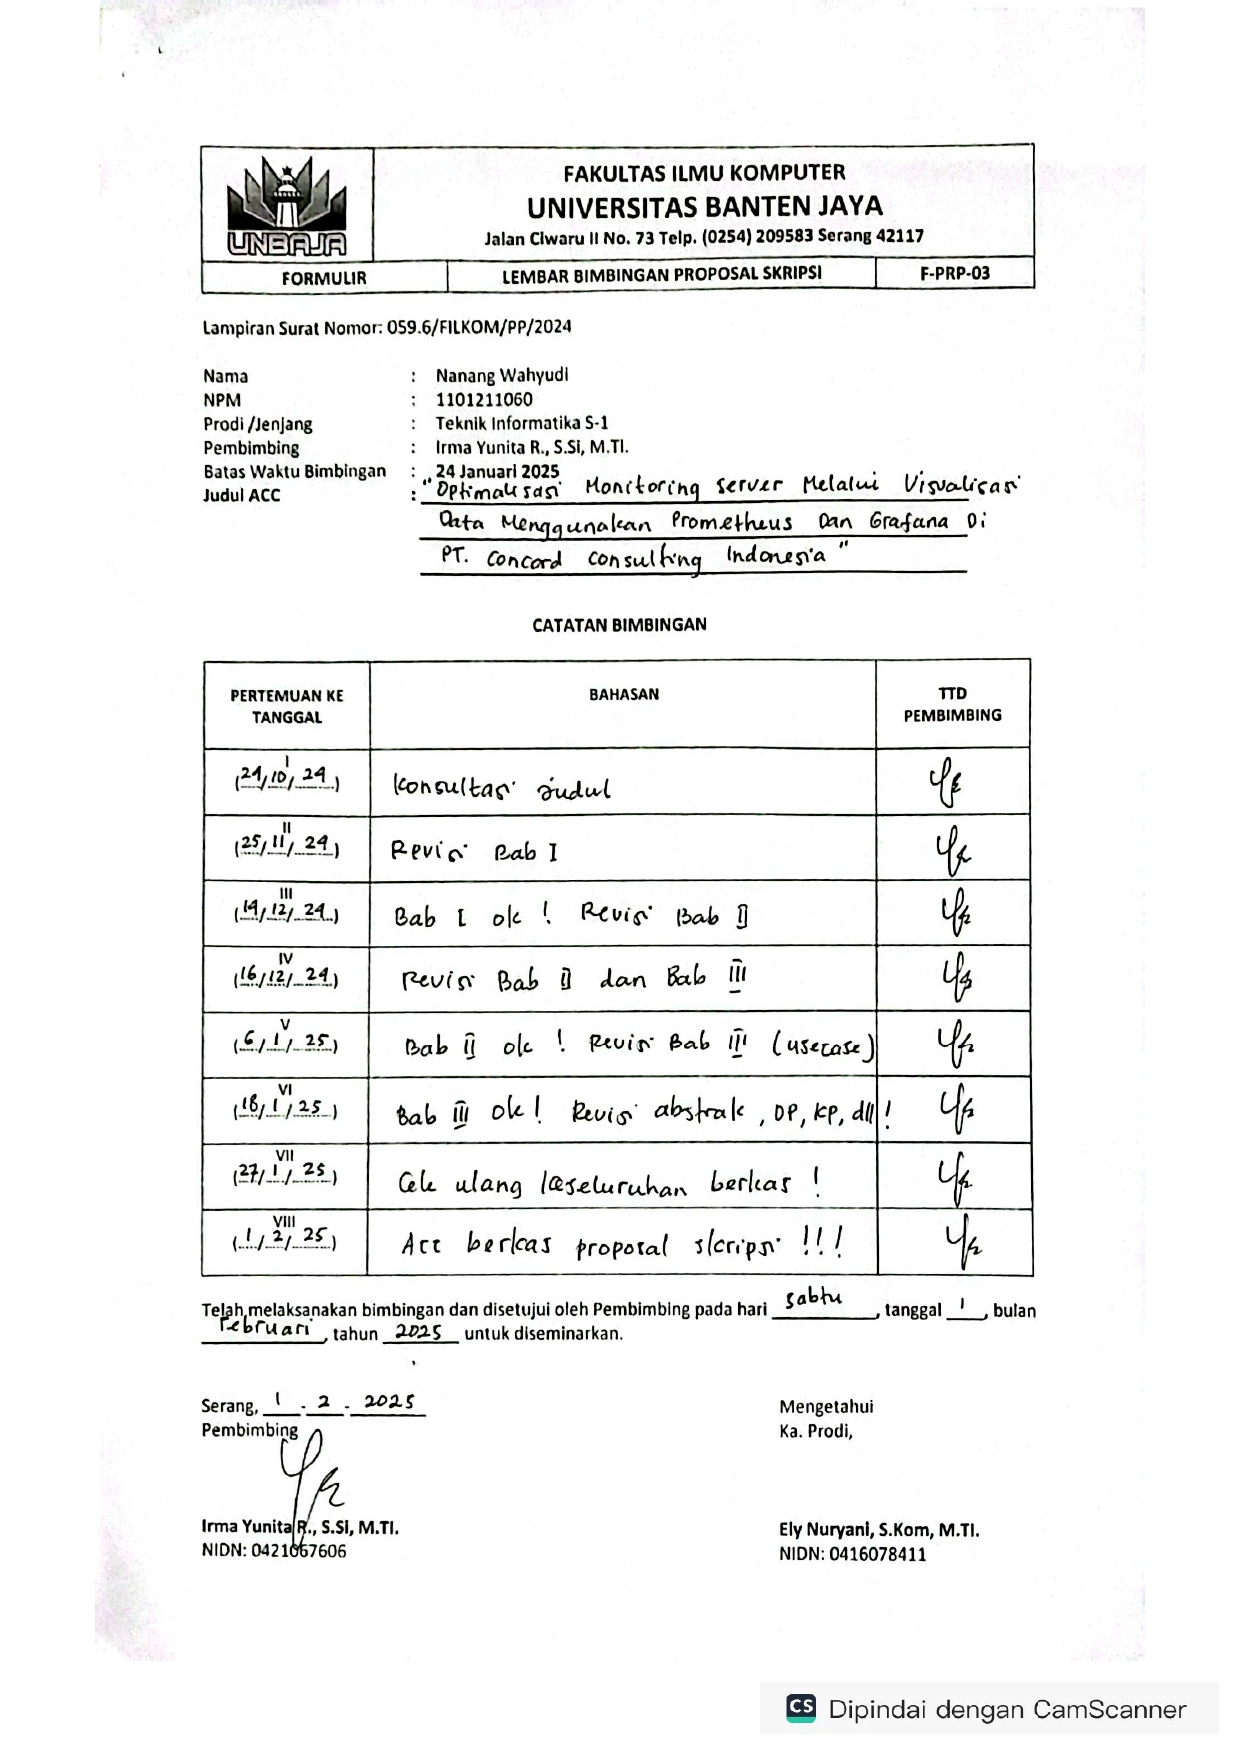 UNBAJA
FAKULTAS ILMU KOMPUTER
UNIVERSITAS BANTEN JAYA
Jalan Ciwaru II No. 73 Telp. (0254) 209583 Serang 42117
FORMULIR LEMBAR BIMBINGAN PROPOSAL SKRIPSI F-PRP-03
Lampiran Surat Nomor: 059.6/FILKOM/PP/2024
Nama : Nanang Wahyudi
NPM : 1101211060
Prodi /Jenjang : Teknik Informatika S-1
Pembimbing : Irma Yunita R., S.Si, M.TI.
Batas Waktu Bimbingan : 24 Januari 2025
Judul ACC : "Optimalisasi Monitoring server Melalui Visualisasi
Data Menggunakan Prometheus Dan Grafana Di
PT. Concord Consulting Indonesia"
CATATAN BIMBINGAN
PERTEMUAN KE TANGGAL BAHASAN TTD PEMBIMBING
I
(24/10/24) Konsultasi Judul
II
(25/11/24) Revisi Bab I
III
(14/12/24) Bab I ok ! Revisi Bab II
IV
(16/12/24) Revisi Bab II dan Bab III
V
(6/1/25) Bab II ok ! Revisi Bab III (usecase)
VI
(18/1/25) Bab III ok ! Revisi abstrak, DP, KP, dll !
VII
(27/1/25) Cek ulang keseluruhan berkas !
VIII
(1/2/25) Acc berkas proposal skripsi !!!
Telah melaksanakan bimbingan dan disetujui oleh Pembimbing pada hari sabtu, tanggal 1, bulan
Februari, tahun 2025 untuk diseminarkan.
Serang, 1 - 2 - 2025 Mengetahui
Pembimbing Ka. Prodi,
Irma Yunita R., S.Si, M.TI. Ely Nuryani, S.Kom, M.TI.
NIDN: 0421067606 NIDN: 0416078411
CS Dipindai dengan CamScanner